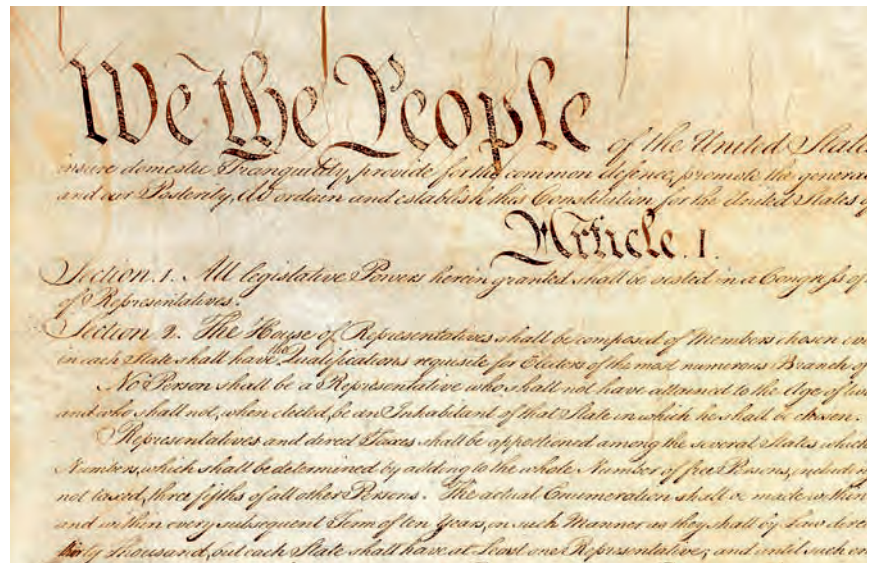 We the People of the United State
insure domestic Tranquility, provide for the common defence, promote the general
and our Posterity, do ordain and establish this Constitution for the United States of
Article. I.
Section. 1. All legislative Powers herein granted shall be vested in a Congress of
of Representatives.
Section. 2. The House of Representatives shall be composed of Members chosen eve
in each State shall have the Qualifications requisite for Electors of the most numerous Branch of
No Person shall be a Representative who shall not have attained to the Age of twe
and who shall not, when elected, be an Inhabitant of that State in which he shall be chosen.
Representatives and direct Taxes shall be apportioned among the several States which
Numbers, which shall be determined by adding to the whole Number of free Persons, including
not taxed, three fifths of all other Persons. The actual Enumeration shall be made within
and within every subsequent Term of ten Years, in such Manner as they shall by Law direc
thirty Thousand, but each State shall have at Least one Representative; and until such en